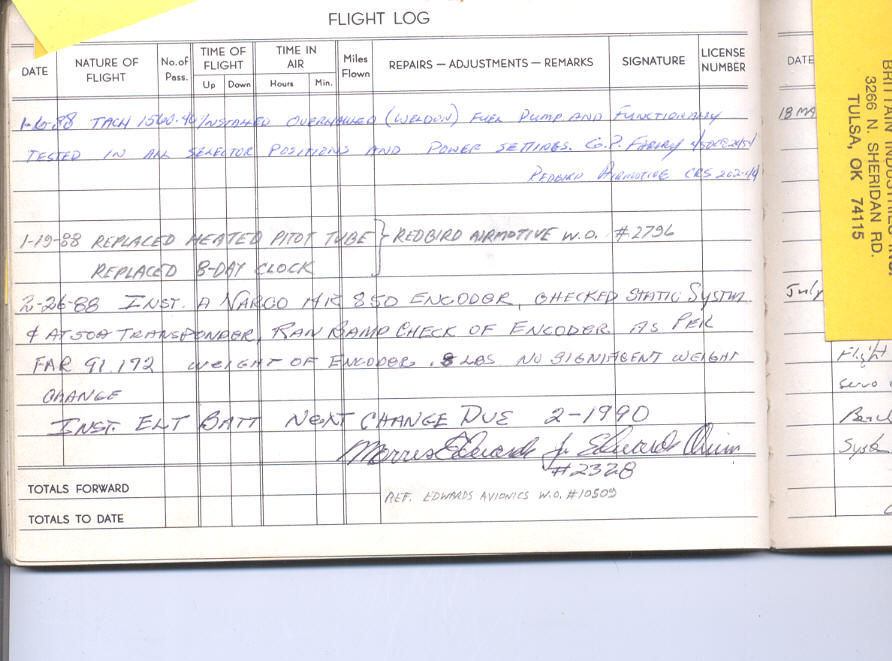 FLIGHT LOG
DATE
NATURE OF FLIGHT
No. of Pass.
TIME OF FLIGHT
Up Down
TIME IN AIR
Hours Min.
Miles Flown
REPAIRS — ADJUSTMENTS — REMARKS
SIGNATURE
LICENSE NUMBER
1-6-88 TACH 1560.40 INSTALLED OVERHAULED (WELDON) FUEL PUMP AND FUNCTIONALLY
TESTED IN ALL SELECTOR POSITIONS AND POWER SETTINGS. G.P.
REDBIRD AIRMOTIVE CRS
1-19-88 REPLACED HEATED PITOT TUBE } REDBIRD AIRMOTIVE W.O. #2796
REPLACED 8-DAY CLOCK
2-26-88 INST. A NARCO AR 850 ENCODER, CHECKED STATIC SYSTEM
& AT50A TRANSPONDER, RAN RAMP CHECK OF ENCODER AS PER
FAR 91.172 WEIGHT OF ENCODER .8 LBS NO SIGNIFICENT WEIGHT
CHANGE
INST. ELT BATT NEXT CHANGE DUE 2-1990
Morris Edwards Jr Edwards
#2328
TOTALS FORWARD
REF. EDWARDS AVIONICS W.O. #10509
TOTALS TO DATE
DATE
18 MA
July
Flight
Servo
Bench
System
3266 N. SHERIDAN RD.
TULSA, OK 74115